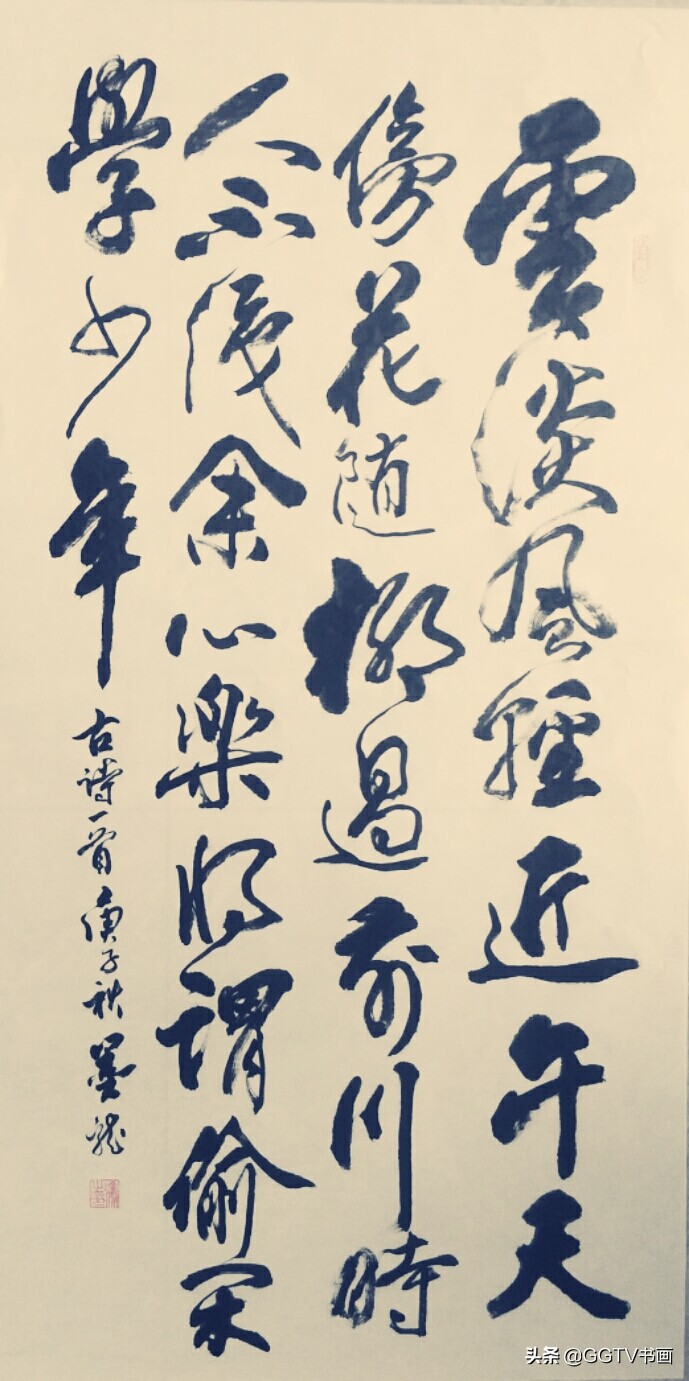 雲淡風輕近午天
傍花随柳過前川時
人不識余心樂將謂偷閑
學少年
古詩一首庚子秋墨龍
头条 @GGTV书画